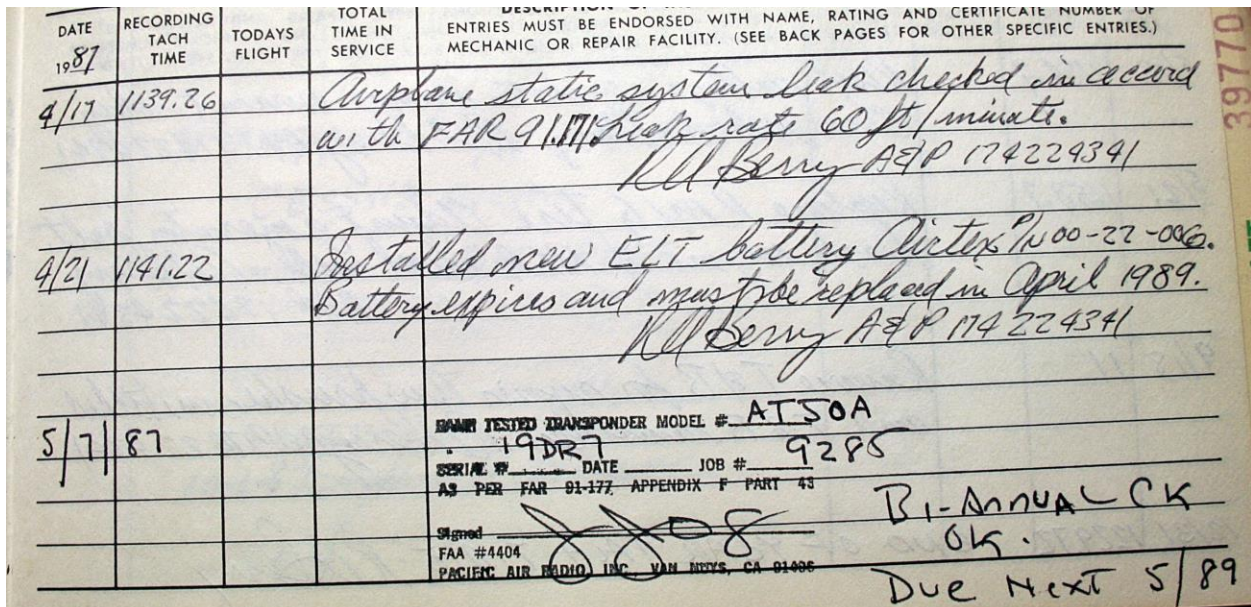 DATE
1987
RECORDING
TACH
TIME
TODAYS
FLIGHT
TOTAL
TIME IN
SERVICE
ENTRIES MUST BE ENDORSED WITH NAME, RATING AND CERTIFICATE NUMBER OF
MECHANIC OR REPAIR FACILITY. (SEE BACK PAGES FOR OTHER SPECIFIC ENTRIES.)
39770
4/17 1139.26 Airplane static system leak checked in accord
with FAR 91.171. Leak rate 60 ft/minute.
Berry A&P 174224341
4/21 1141.22 Installed new ELT battery Airtex P/N 00-22-006.
Battery expires and must be replaced in April 1989.
Berry A&P 174224341
5/7/87
TESTED TRANSPONDER MODEL # AT50A
19DR7 9285
SERIAL # DATE JOB #
AS PER FAR 91-177, APPENDIX F PART 43
Signed
FAA #4404
PACIFIC AIR RADIO, INC. VAN NUYS, CA 91406
BI-ANNUAL CK
OK.
DUE NEXT 5/89